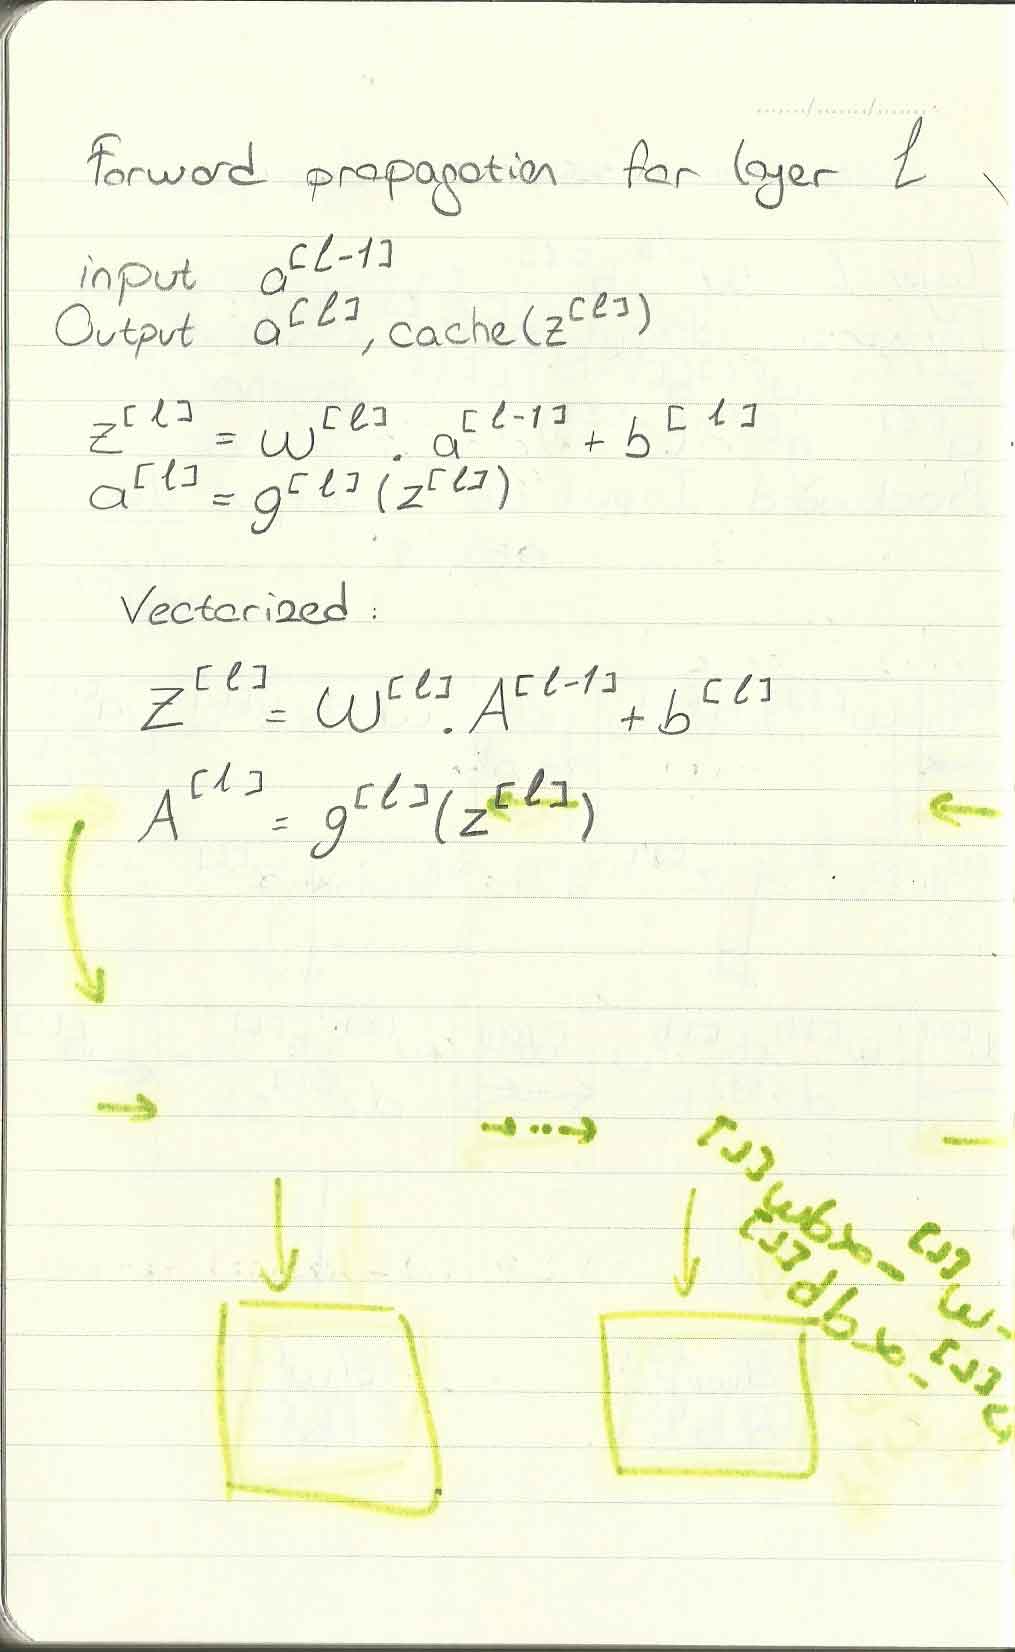 Forward propagation for layer l
input a^[l-1]
Output a^[l], cache(z^[l])
z^[l] = w^[l] . a^[l-1] + b^[l]
a^[l] = g^[l](z^[l])
Vectorized :
Z^[l] = W^[l] . A^[l-1] + b^[l]
A^[l] = g^[l](z^[l])